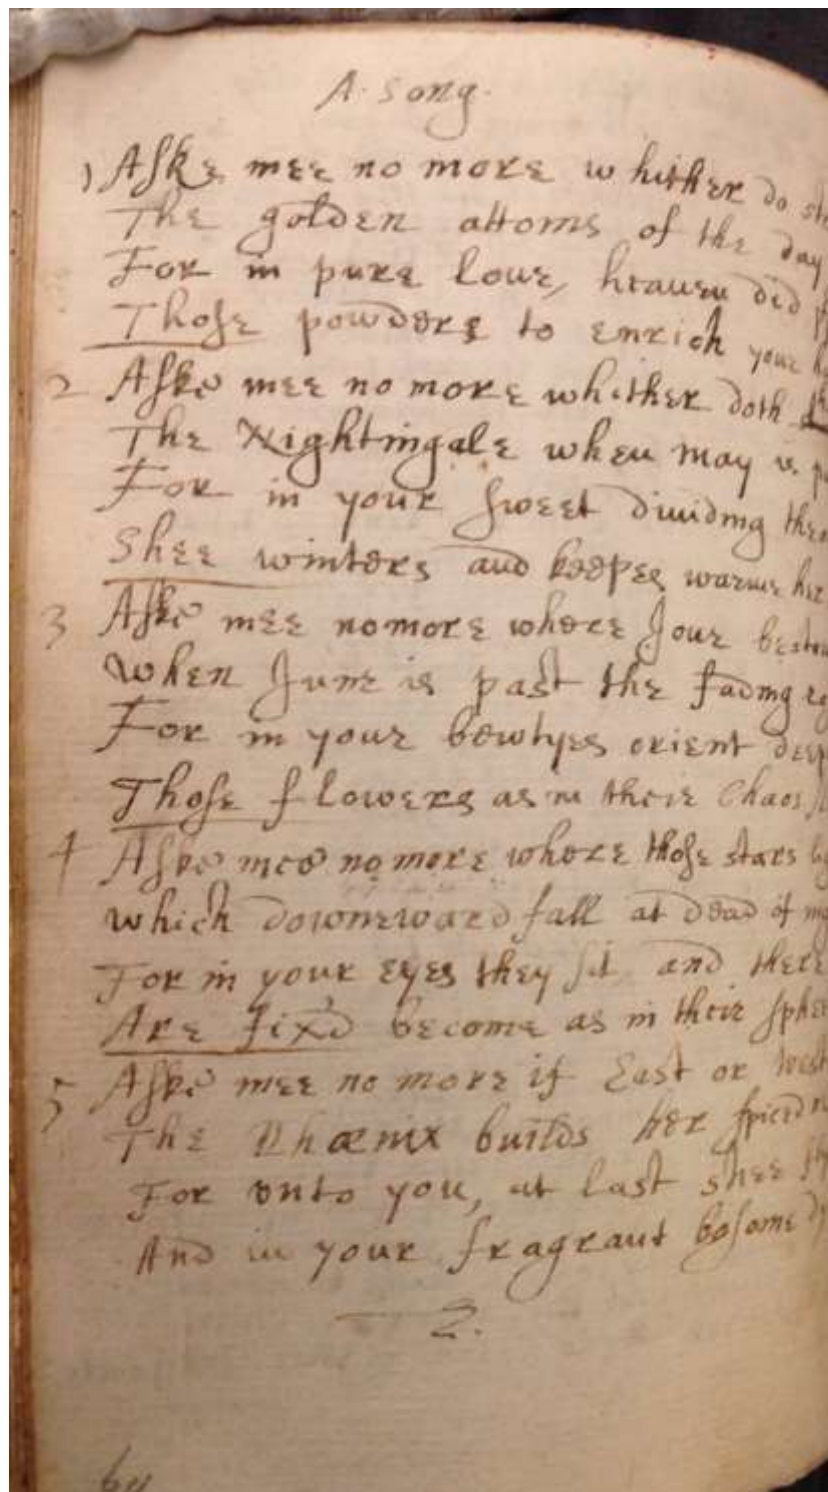 A. song.
1) Aske mee no more whither do
The golden attoms of the day
For in pure loue, heauen did
Those powders to enrich your
2 Aske mee no more whither doth
The Nightingale when may is
For in your sweet diuiding
Shee winters and keepes warme her
3 Aske mee no more where Joue
When June is past the fading
For in your bewtyes orient
Those flowers as in their Chaos
4 Aske mee no more where those stars
which downeward fall at dead of
For in your eyes they sit and there
Are fixd become as in their
5 Aske mee no more if East or West
The Phœnix builds her spiced
For vnto you, at last shee
And in your fragrant bosome
2.